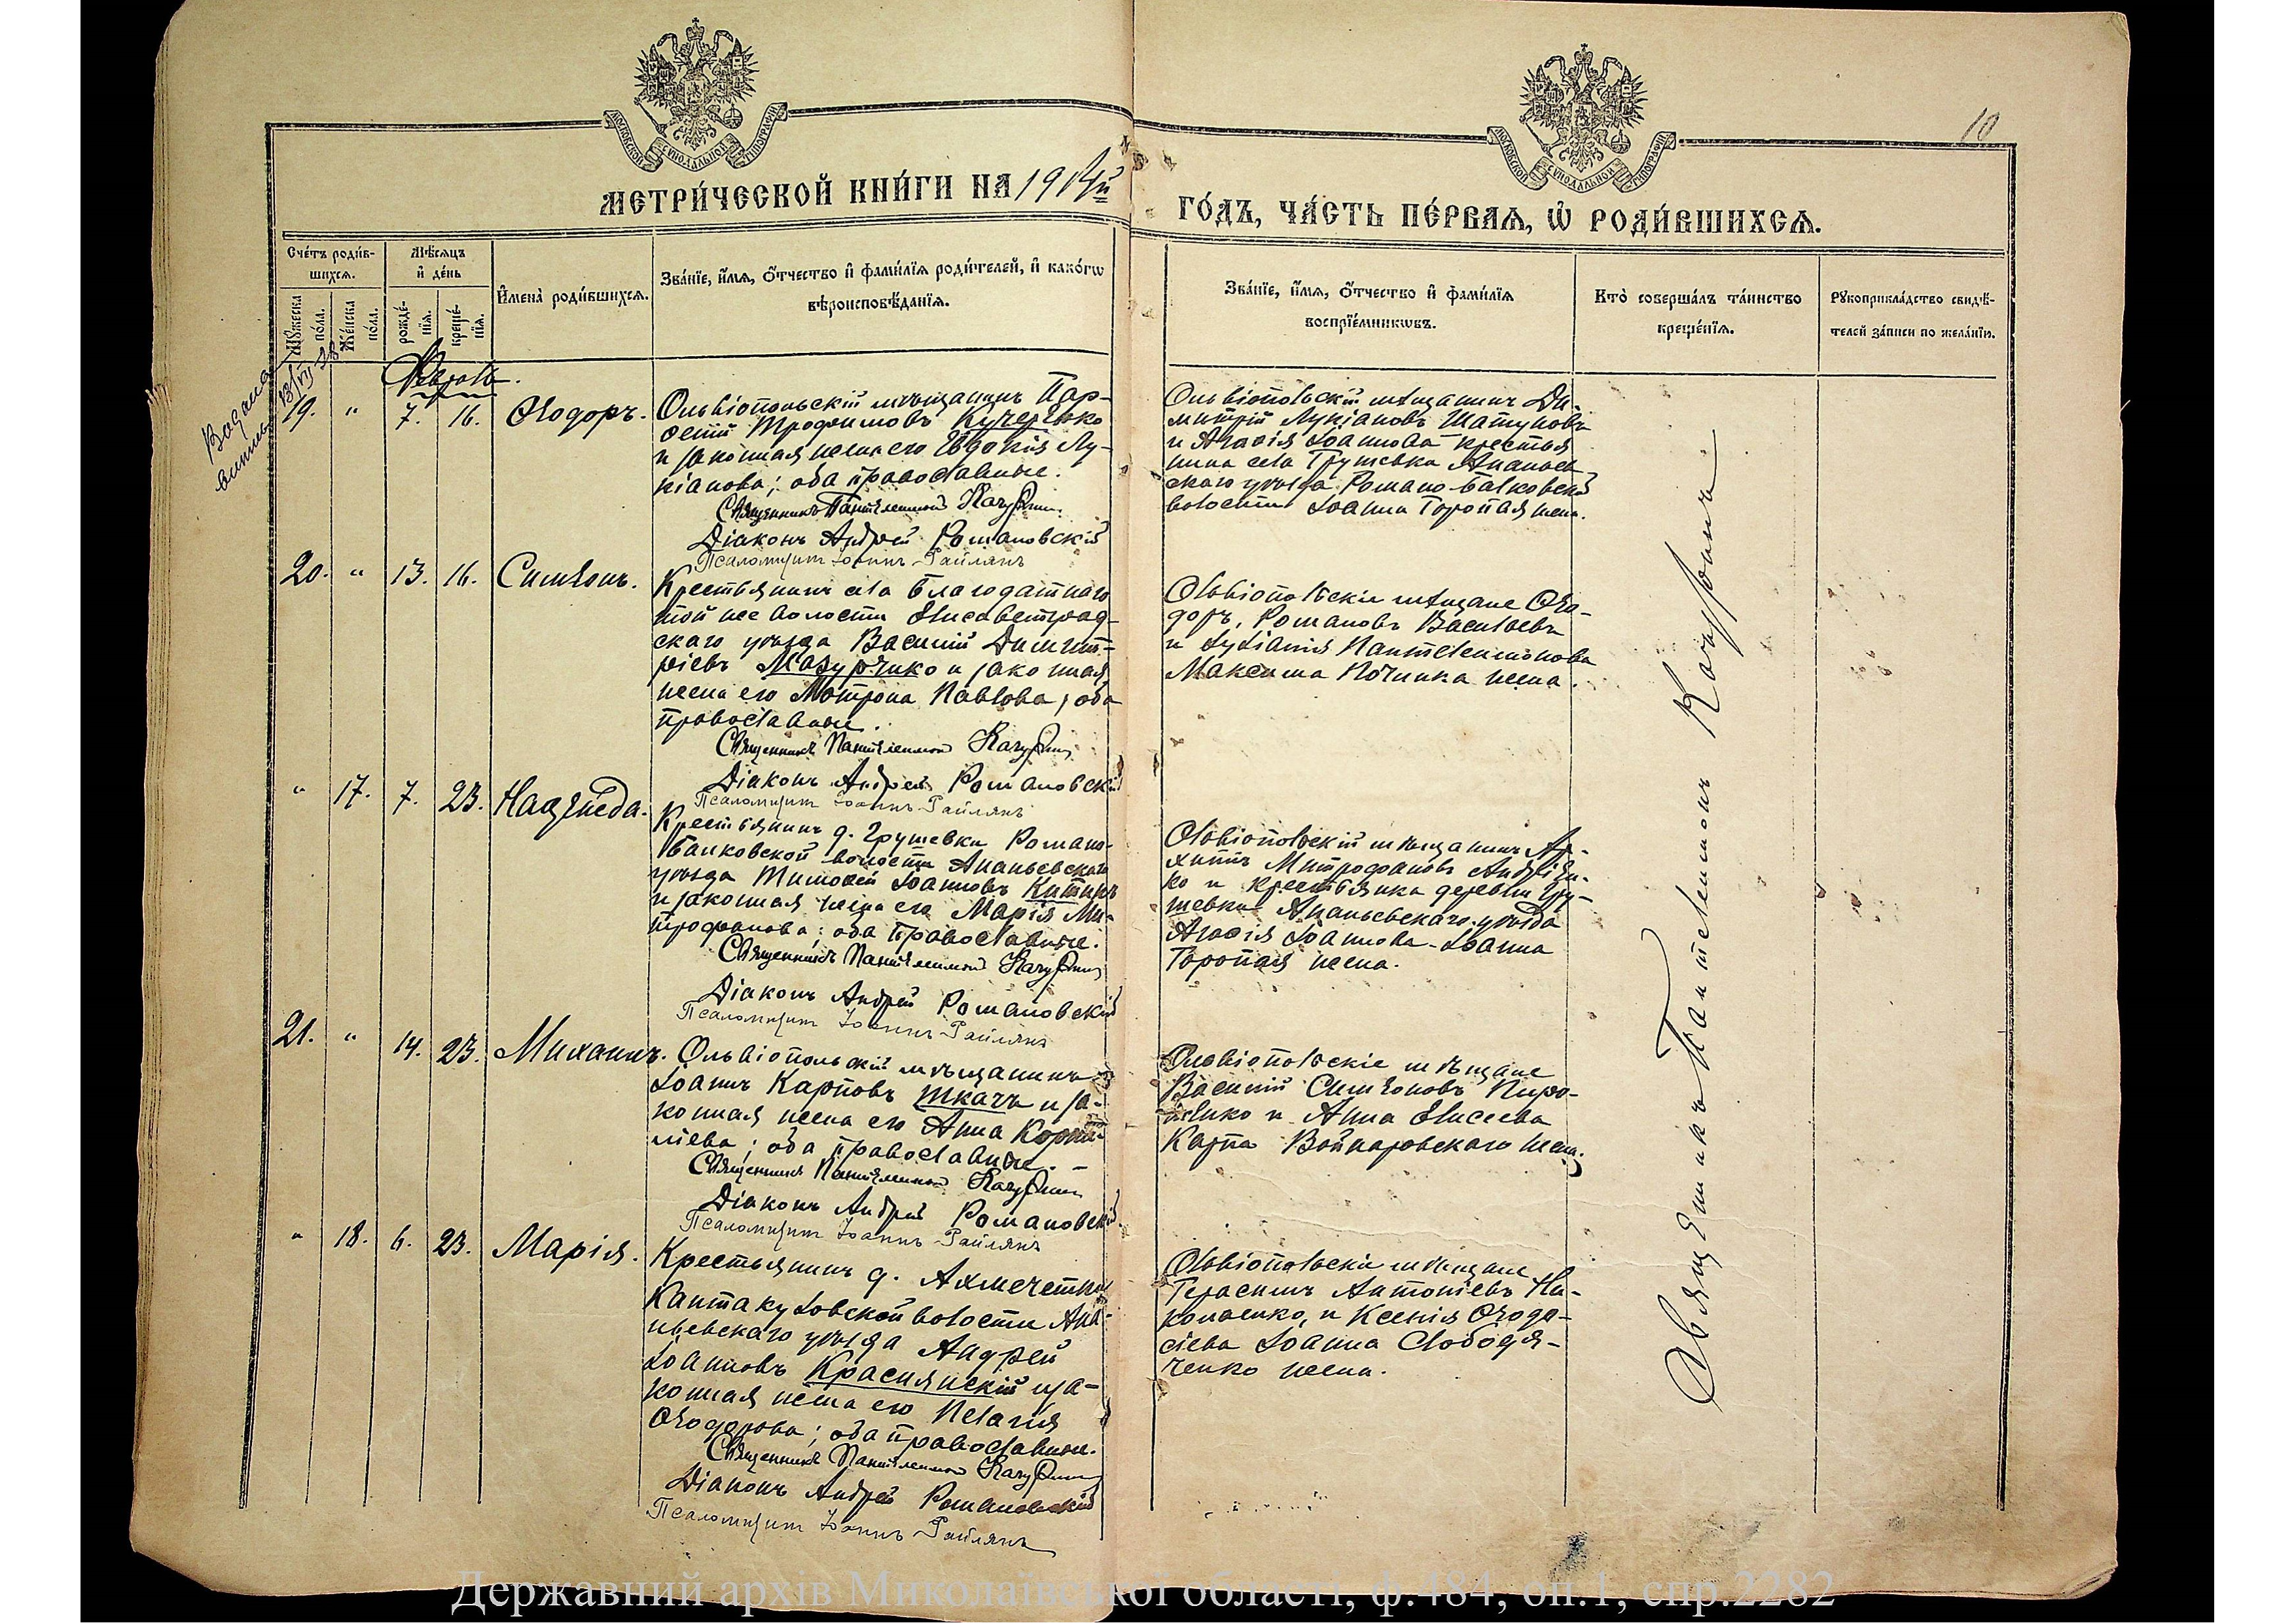 МОСКОВСКОЙ СѴНОДАЛЬНОЙ ТИПОГРАФІИ
МОСКОВСКОЙ СѴНОДАЛЬНОЙ ТИПОГРАФІИ
10
МЕТРИ́ЧЕСКОЙ КНИ́ГИ НА 19
ГО́ДЪ, ЧА́СТЬ ПЕ́РВАЯ, Ѡ҆ РОДИ́ВШИХСЯ.
Сче́тъ роди́в-
шихся.
Мѣ́сяцъ
и҆ де́нь
И҆мена̀ роди́вшихся.
Зва́нїе, и҆́мя, ѻ҆́тчество и҆ фами́лїя роди́телей, и҆ како́гѡ
вѣроисповѣ́данїя.
Мꙋ́жеска
по́ла.
Же́нска
по́ла.
рожде́-
нїя.
креще́-
нїя.
Зва́нїе, и҆́мя, ѻ҆́тчество и҆ фами́лїя
воспрїе́мникѡвъ.
Кто̀ соверша́лъ та́инство
креще́нїя.
Рꙋкоприкла́дство свидѣ́-
телей за́писи по жела́нїю.
Февраль.
19. " 7. 16. Ѳеодоръ.
Ольвіопольскій мѣщанинъ Пар-
ѳеній Трофимовъ Кучеренко
и законная жена его Евдокія Лу-
кіанова; оба православные.
Священникъ Пантелеимонъ
Діаконъ Андрей Романовскій
Псаломщикъ Іоаннъ Райлянъ
Ольвіопольскій мѣщанинъ Ди-
митрій Лукіановъ Шатуновъ
и Агафія Іоаннова крестья
нина села Грушевка Ананьев
скаго уѣзда Романо-Балковской
волости Іоанна Торопая жена.
20. " 13. 16. Симеонъ.
Крестьянинъ села Благодатнаго
той же волости Елисаветград-
скаго уѣзда Василій Димит-
ріевъ Мазуренко и законная
жена его Мотрона Павлова; оба
православные.
Священникъ Пантелеимонъ
Діаконъ Андрей Романовскій
Псаломщикъ Іоаннъ Райлянъ
Ольвіопольскіе мѣщане Ѳео-
доръ, Романовъ Васильевъ
и Пантелеимонова
Максима Починка жена.
" 17. 7. 23. Надежда.
Крестьянинъ д. Грушевки Романо-
Балковской волости Ананьевскаго
уѣзда Тимоѳей Іоанновъ
и законная жена его Марія Ми-
трофанова; оба православные.
Священникъ Пантелеимонъ
Діаконъ Андрей Романовскій
Псаломщикъ Іоаннъ Райлянъ
Ольвіопольскій мѣщанинъ Ар-
хипъ Митрофановъ Андреен-
ко и крестьянка деревни Гру-
шевки Ананьевскаго уѣзда
Агафія Іоаннова Іоанна
Торопая жена.
21. " 14. 23. Михаилъ.
Ольвіопольскій мѣщанинъ
Іоаннъ Карповъ Ткачъ и за-
конная жена его Анна Корни-
ліева; оба православные.
Священникъ Пантелеимонъ
Діаконъ Андрей Романовскій
Псаломщикъ Іоаннъ Райлянъ
Ольвіопольскіе мѣщане
Василій Симеоновъ Пиро-
женко и Анна Елисеева
Карпа Войнаровскаго жена.
" 18. 6. 23. Марія.
Крестьянинъ д. Ахмечетки
Кантакузовской волости Ана-
ньевскаго уѣзда Андрей
Іоанновъ Краснянскій и за-
конная жена его Пелагія
Ѳеодорова; оба православные.
Священникъ Пантелеимонъ
Діаконъ Андрей Романовскій
Псаломщикъ Іоаннъ Райлянъ
Ольвіопольскіе мѣщане
Герасимъ Антоніевъ Ни-
колаенко, и Ксенія Ѳеодо-
сіева Іоанна Слободя-
ченко жена.
Священникъ Пантелеимонъ
Державний архів Миколаївської області, ф.484, оп.1, спр.2282